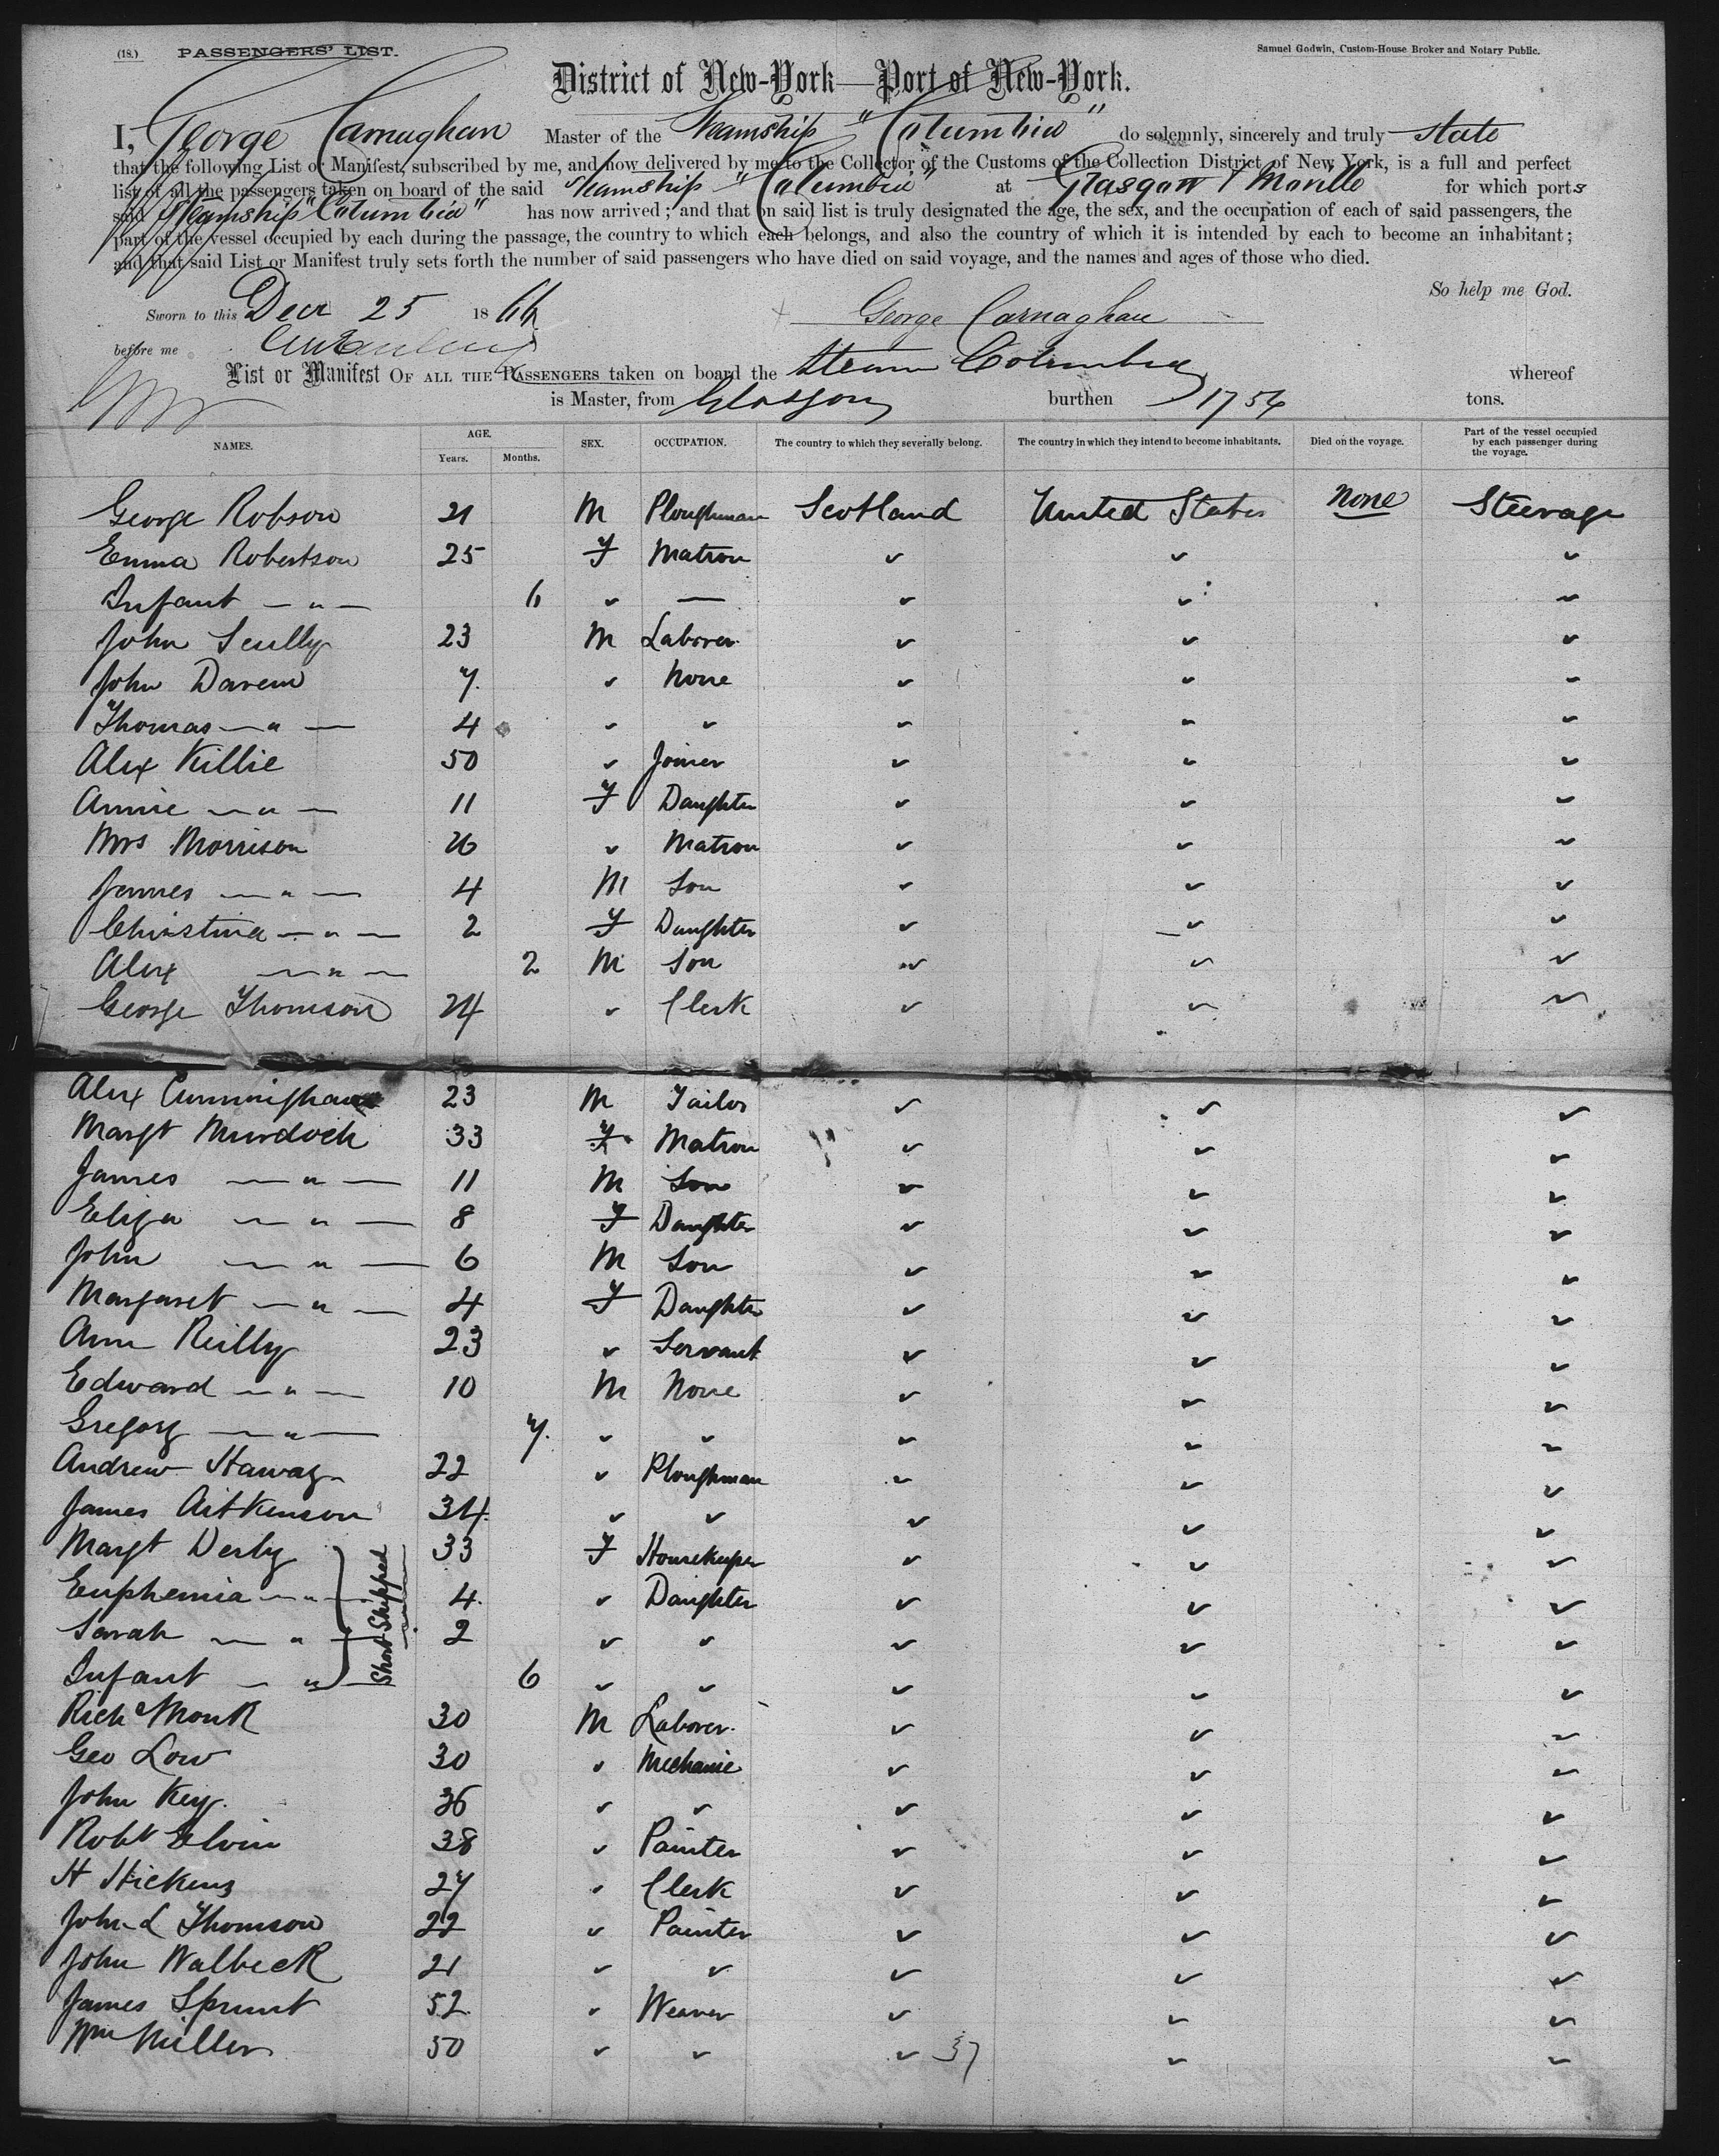 (18.) PASSENGERS' LIST. Samuel Godwin, Custom-House Broker and Notary Public.
District of New-York—Port of New-York.
I, George Carnaghan Master of the Steamship "Columbia" do solemnly, sincerely and truly state
that the following List or Manifest, subscribed by me, and now delivered by me to the Collector of the Customs of the Collection District of New York, is a full and perfect
list of all the passengers taken on board of the said Steamship "Columbia" at Glasgow & Moville for which ports
said Steamship "Columbia" has now arrived; and that on said list is truly designated the age, the sex, and the occupation of each of said passengers, the
part of the vessel occupied by each during the passage, the country to which each belongs, and also the country of which it is intended by each to become an inhabitant;
and that said List or Manifest truly sets forth the number of said passengers who have died on said voyage, and the names and ages of those who died.
So help me God.
Sworn to this Decr 25 1866 George Carnaghan
before me
List or Manifest OF ALL THE PASSENGERS taken on board the Steam Columbia whereof
is Master, from Glasgow burthen 1754 tons.
NAMES. AGE. Years. Months. SEX. OCCUPATION. The country to which they severally belong. The country in which they intend to become inhabitants. Died on the voyage. Part of the vessel occupied by each passenger during the voyage.
George Robson 21 M Ploughman Scotland United States None Steerage
Emma Robertson 25 F Matron ✓ ✓ ✓
Infant — " — 6 ✓ — ✓ ✓ ✓
John Scully 23 M Laborer ✓ ✓ ✓
John Daren 7. ✓ None ✓ ✓ ✓
Thomas — " — 4 ✓ ✓ ✓ ✓ ✓
Alex Killie 50 ✓ Joiner ✓ ✓ ✓
Annie — " — 11 F Daughter ✓ ✓ ✓
Mrs Morrison 26 ✓ Matron ✓ ✓ ✓
James — " — 4 M Son ✓ ✓ ✓
Christina — " — 2 F Daughter ✓ ✓ ✓
Alex — " — 2 M Son ✓ ✓ ✓
George Thomson 24 ✓ Clerk ✓ ✓ ✓
Alex Cunningham 23 M Tailor ✓ ✓ ✓
Margt Murdoch 33 F Matron ✓ ✓ ✓
James — " — 11 M Son ✓ ✓ ✓
Eliza — " — 8 F Daughter ✓ ✓ ✓
John — " — 6 M Son ✓ ✓ ✓
Margaret — " — 4 F Daughter ✓ ✓ ✓
Ann Reilly 23 ✓ Servant ✓ ✓ ✓
Edward — " — 10 M None ✓ ✓ ✓
Gregory — " — 7. ✓ ✓ ✓ ✓ ✓
Andrew 22 ✓ Ploughman ✓ ✓ ✓
James Aitkenson 34 ✓ ✓ ✓ ✓ ✓
Margt Derby 33 F Housekeeper ✓ ✓ ✓
Euphemia — " — 4. ✓ Daughter ✓ ✓ ✓
Sarah — " — 2 ✓ ✓ ✓ ✓ ✓
Infant — " — 6 ✓ ✓ ✓ ✓ ✓
Short Shipped
Richd Monk 30 M Laborer ✓ ✓ ✓
Geo Low 30 ✓ Mechanic ✓ ✓ ✓
John Key. 36 ✓ ✓ ✓ ✓ ✓
Robt Elvin 38 ✓ Painter ✓ ✓ ✓
H Hickens 27 ✓ Clerk ✓ ✓ ✓
John L Thomson 22 ✓ Painter ✓ ✓ ✓
John Walbeck 21 ✓ ✓ ✓ ✓ ✓
James Sprunt 52 ✓ Weaver ✓ ✓ ✓
Wm Miller 50 ✓ ✓ ✓ 37 ✓ ✓